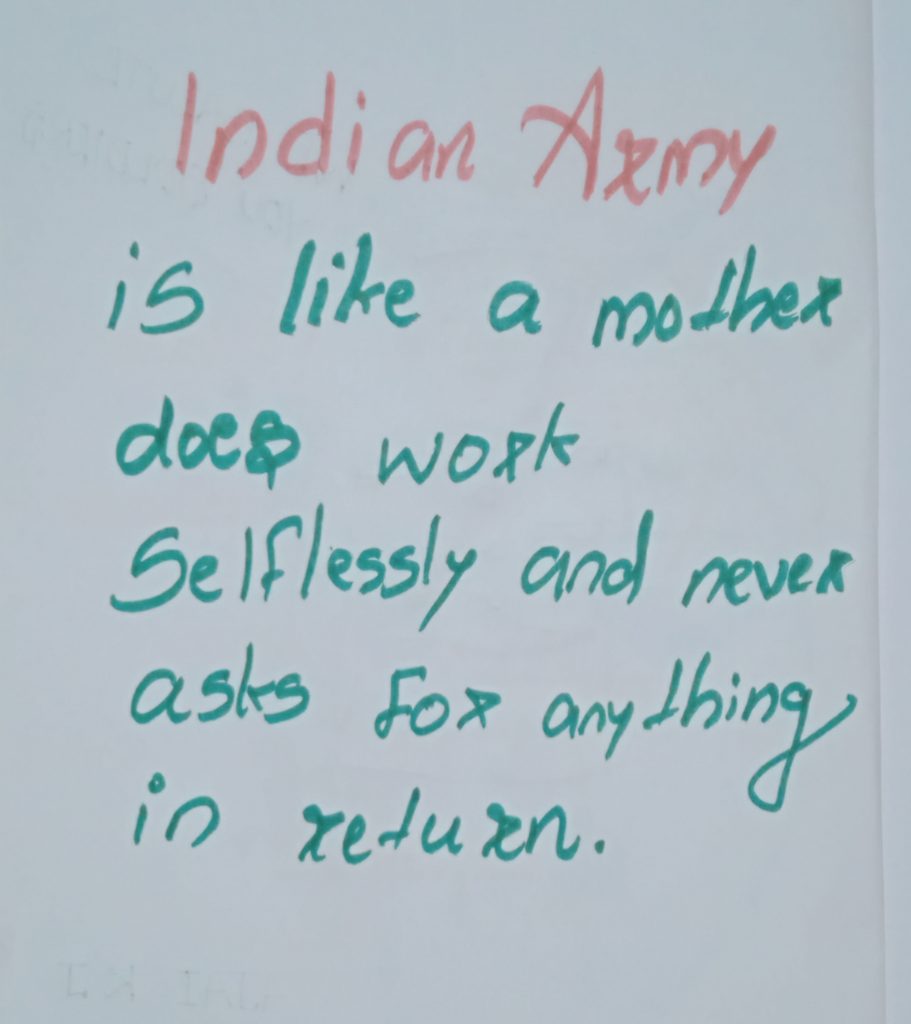 Indian Army
is like a mother
does work
Selflessly and never
asks for anything
in return.